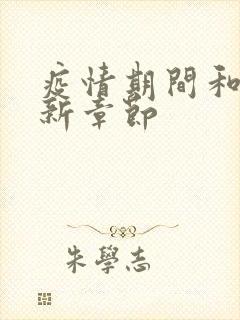 疫情期間和
新章節
朱學志